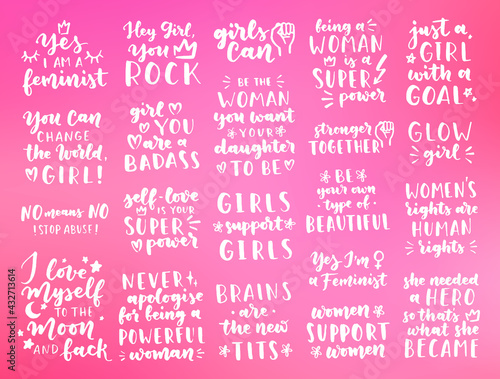 Yes
I AM A
feminist
You Can
CHANGE
the World,
GIRL!
NO means NO
! STOP ABUSE!
I love
myself
TO THE
Moon
AND back
Hey Girl,
you
ROCK
girl
YOU
are a
BADASS
self-love
IS YOUR
SUPER
power
NEVER
apologise
for being a
POWERFUL
woman
girls
CAN
BE THE
WOMAN
you want
YOUR
daughter
TO BE
GIRLS
support
GIRLS
BRAINS
are
the new
TITS
being a
WOMAN
is a
SUPER
power
stronger
TOGETHER
BE
your own
type of
BEAUTIFUL
Yes I'm
a Feminist
women
SUPPORT
women
just a
GIRL
with a
GOAL
GLOW
girl
WOMEN'S
rights are
HUMAN
rights
she needed
a HERO
so that's
what she
BECAME
Adobe Stock | #432713614